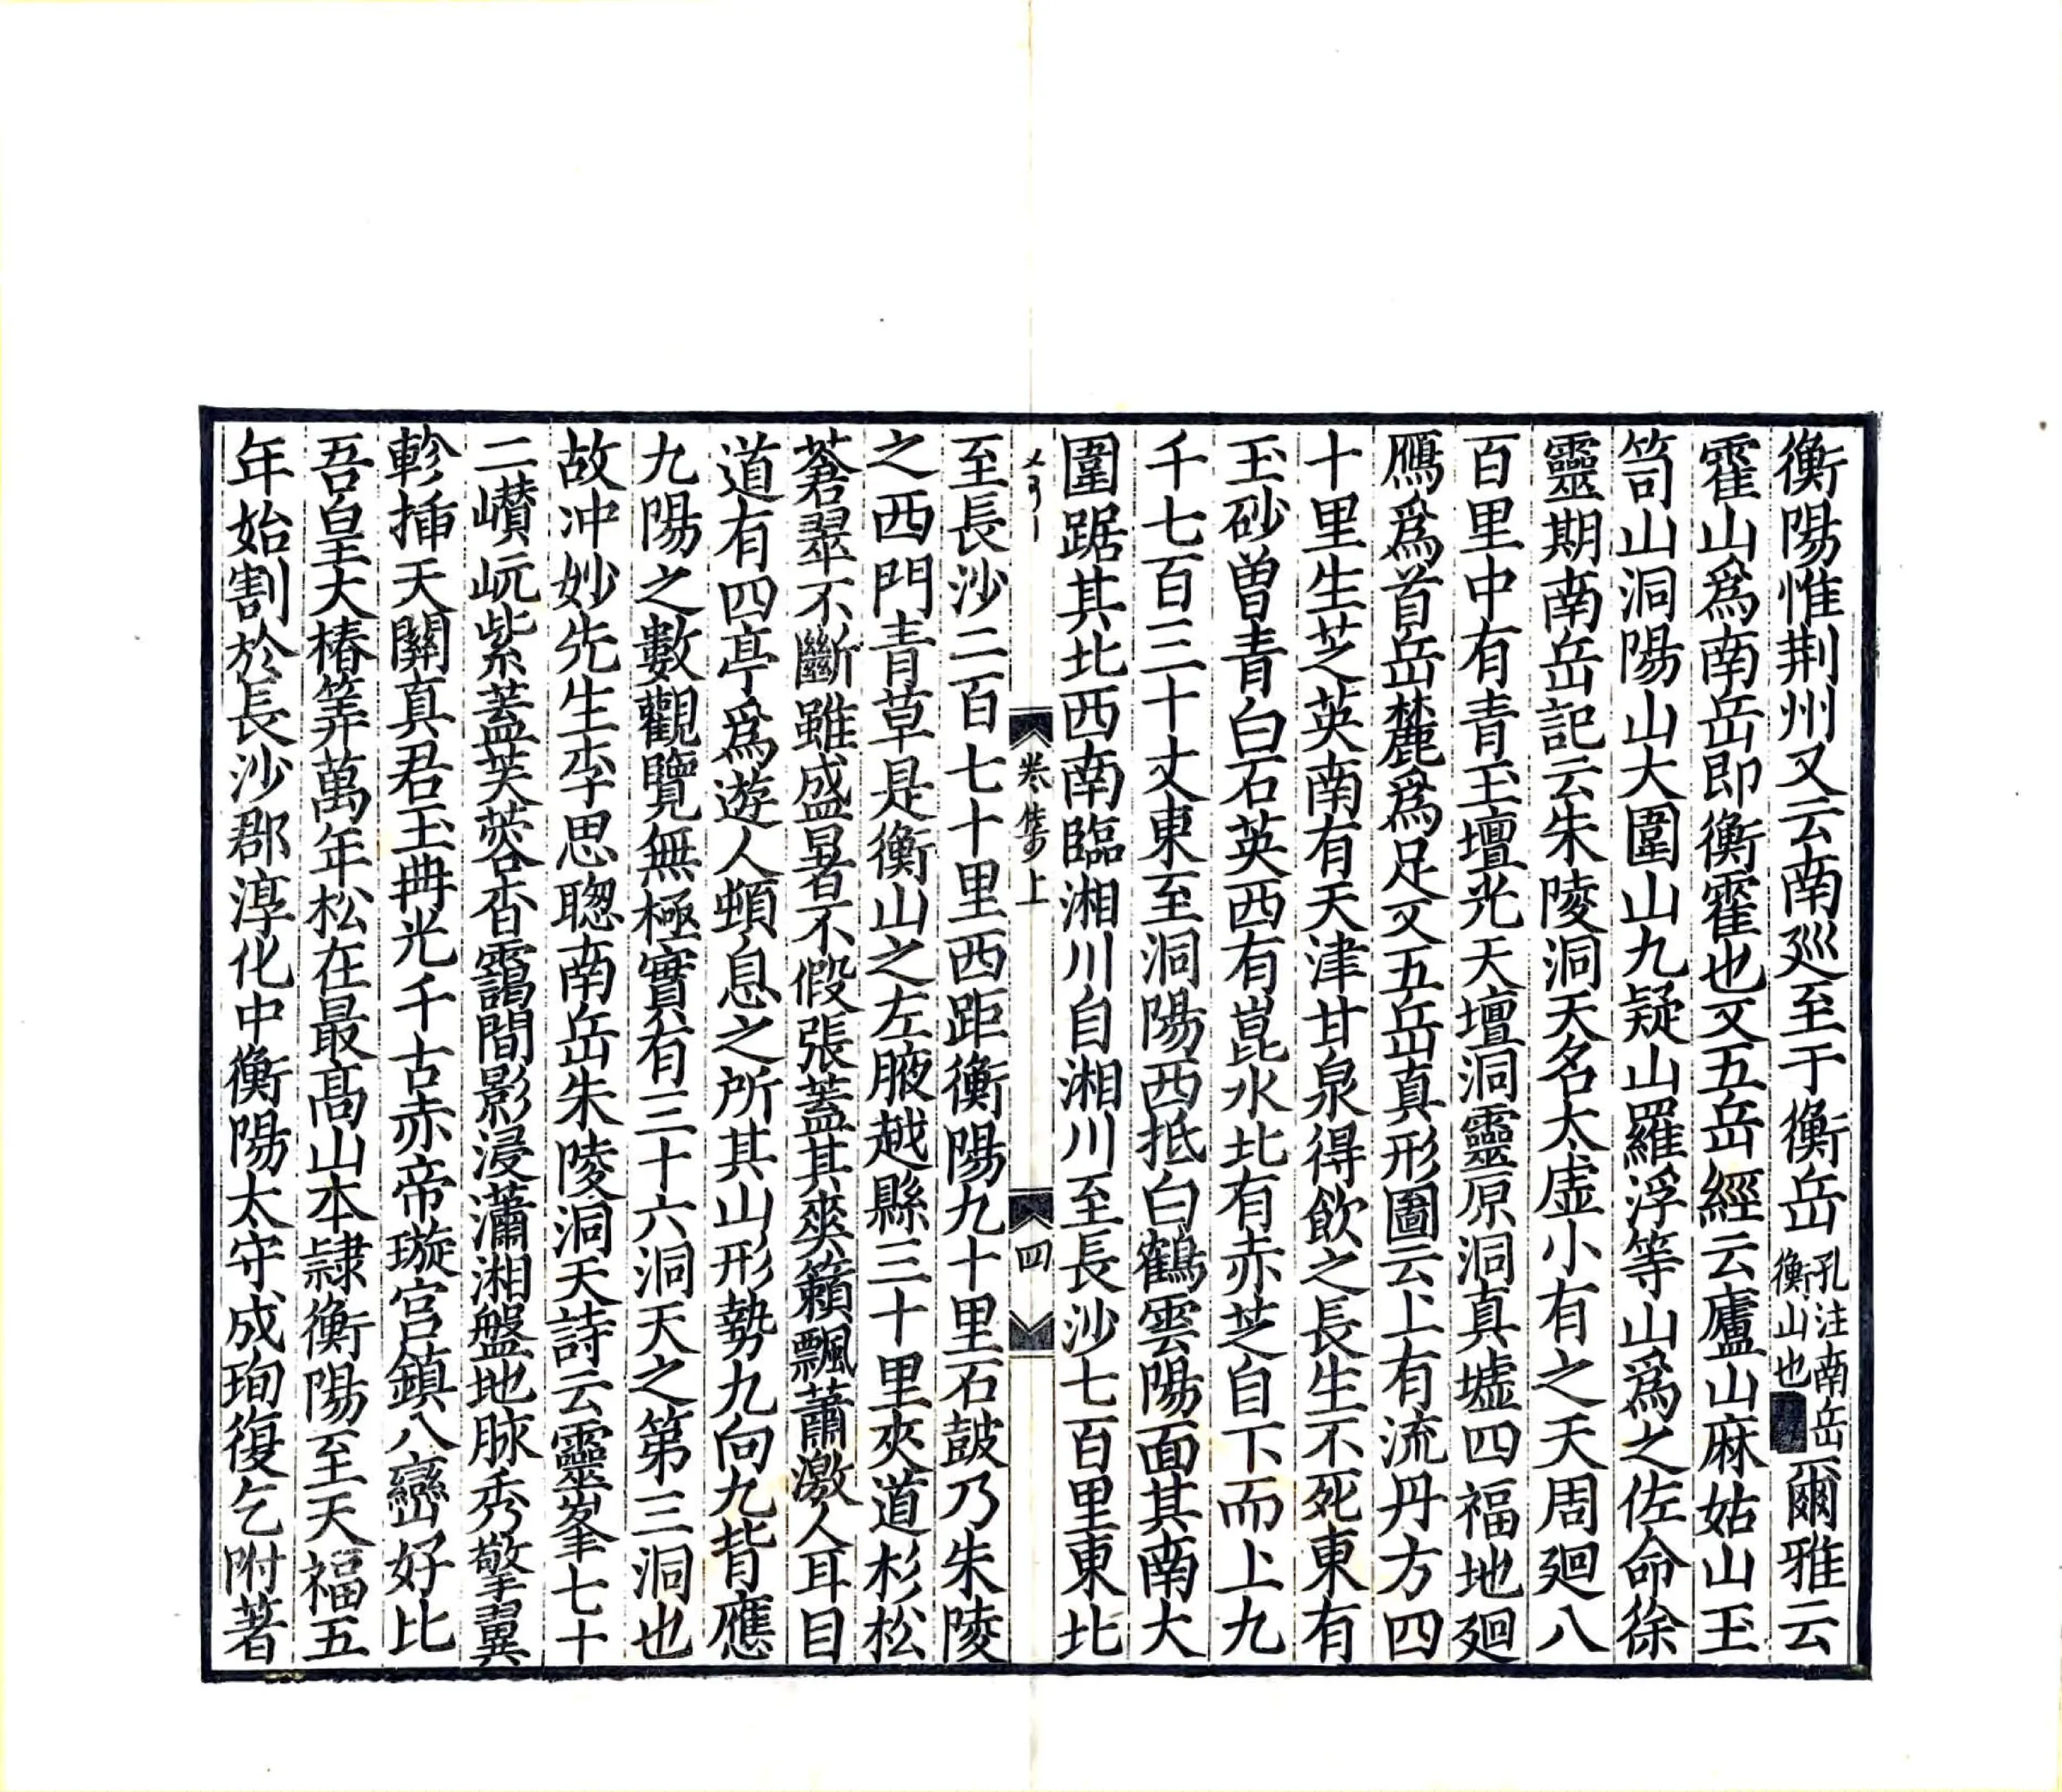 衡陽惟荆州又云南巡至于衡岳孔注南岳衡山也爾雅云
霍山爲南岳即衡霍也又五岳經云廬山麻姑山玉
笥山洞陽山大圍山九疑山羅浮等山爲之佐命徐
靈期南岳記云朱陵洞天名太虛小有之天周廻八
百里中有青玉壇光天壇洞靈原洞真墟四福地廻
鴈爲首岳麓爲足又五岳真形圖云上有流丹方四
十里生芝英南有天津甘泉得飲之長生不死東有
玉砂曽青白石英西有崑水北有赤芝自下而上九
千七百三十丈東至洞陽西抵白鶴雲陽面其南大
圍踞其北西南臨湘川自湘川至長沙七百里東北
卷集上
四
至長沙二百七十里西距衡陽九十里石皷乃朱陵
之西門青草是衡山之左腋越縣三十里夾道杉松
蒼翠不斷雖盛暑不假張蓋其爽籟飄蕭激人耳目
道有四亭爲遊人頓息之所其山形勢九向九背應
九陽之數觀覽無極實有三十六洞天之第三洞也
故冲妙先生李思聰南岳朱陵洞天詩云靈峯七十
二巑岏紫蓋芙蓉杳靄間影浸瀟湘盤地脉秀擎翼
軫揷天關真君玉冊光千古赤帝璇宫鎮八巒好比
吾皇大椿筭萬年松在最髙山本隷衡陽至天福五
年始割於長沙郡淳化中衡陽太守成珣復乞附著